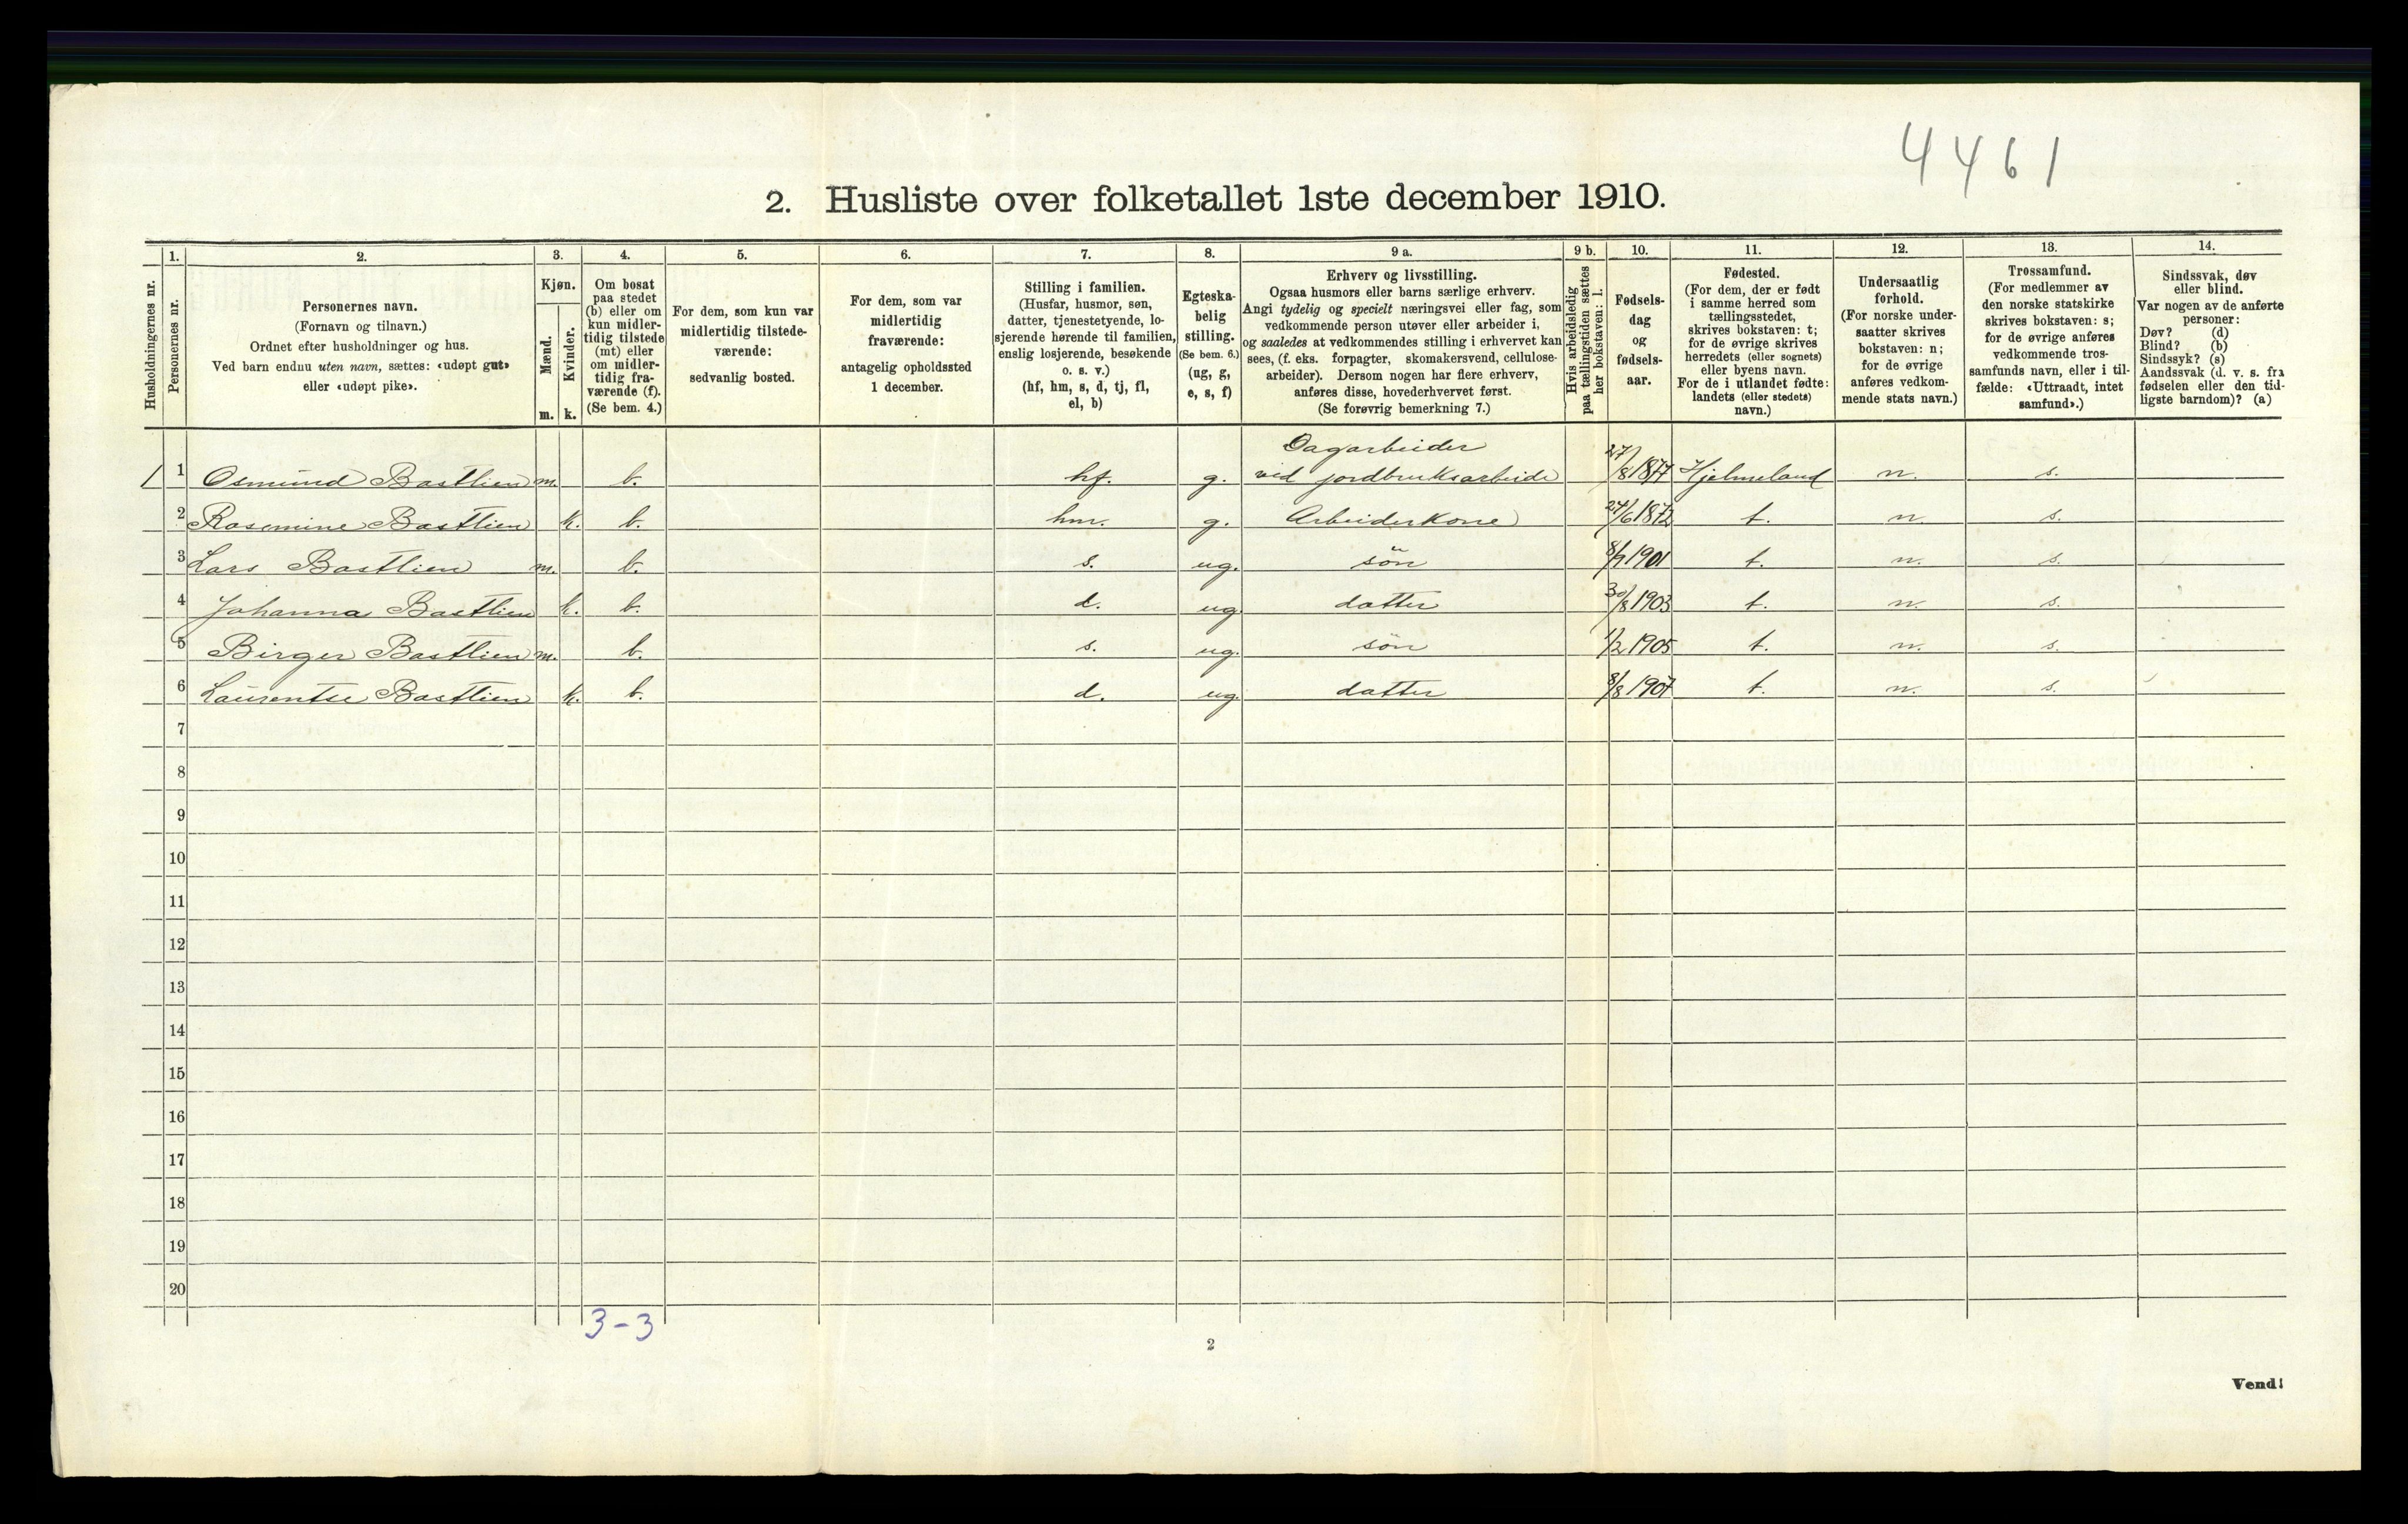 4461
2. Husliste over folketallet 1ste december 1910.
Husholdningernes nr.
1.
Personernes nr.
2.
Personernes navn.
(Fornavn og tilnavn.)
Ordnet efter husholdninger og hus.
Ved barn endnu uten navn, sættes: «udøpt gut»
eller «udøpt pike».
3.
Kjøn.
Mænd.
Kvinder.
m. k.
4.
Om bosat
paa stedet
(b) eller om
kun midler-
tidig tilstede
(mt) eller
om midler-
tidig fra-
værende (f).
(Se bem. 4.)
5.
For dem, som kun var
midlertidig tilstede-
værende:
sedvanlig bosted.
6.
For dem, som var
midlertidig
fraværende:
antagelig opholdssted
1 december.
7.
Stilling i familien.
(Husfar, husmor, søn,
datter, tjenestetyende, lo-
sjerende hørende til familien,
enslig losjerende, besøkende
o. s. v.)
(hf, hm, s, d, tj, fl,
el, b)
8.
Egteska-
belig
stilling.
(Se bem. 6.)
(ug, g,
e, s, f)
9 a.
Erhverv og livsstilling.
Ogsaa husmors eller barns særlige erhverv.
Angi tydelig og specielt næringsvei eller fag, som
vedkommende person utøver eller arbeider i,
og saaledes at vedkommendes stilling i erhvervet kan
sees, (f. eks. forpagter, skomakersvend, cellulose-
arbeider). Dersom nogen har flere erhverv,
anføres disse, hovederhvervet først.
(Se forøvrig bemerkning 7.)
9 b.
Hvis arbeidsledig
paa tællingstiden sættes
her bokstaven: l.
10.
Fødsels-
dag
og
fødsels-
aar.
11.
Fødested.
(For dem, der er født
i samme herred som
tællingsstedet,
skrives bokstaven: t;
for de øvrige skrives
herredets (eller sognets)
eller byens navn.
For de i utlandet fødte:
landets (eller stedets)
navn.)
12.
Undersaatlig
forhold.
(For norske under-
saatter skrives
bokstaven: n;
for de øvrige
anføres vedkom-
mende stats navn.)
13.
Trossamfund.
(For medlemmer av
den norske statskirke
skrives bokstaven: s;
for de øvrige anføres
vedkommende tros-
samfunds navn, eller i til-
fælde: «Uttraadt, intet
samfund».)
14.
Sindssvak, døv
eller blind.
Var nogen av de anførte
personer:
Døv? (d)
Blind? (b)
Sindssyk? (s)
Aandssvak (d. v. s. fra
fødselen eller den tid-
ligste barndom)? (a)
Dagarbeider
1 1 Osmund Bastlien m. b. hf. g. ved jordbruksarbeide 27/8 1874 Hjelmeland n. s.
2 Rasmine Bastlien k. b. hm. g. Arbeiderkone 24/6 1872 t. n. s.
3 Lars Bastlien m. b. s. ug. sön 8/9 1901 t. n. s.
4 Johanna Bastlien k. b. d. ug. datter 30/8 1903 t. n. s.
5 Birger Bastlien m. b. s. ug. sön 1/2 1905 t. n. s.
6 Laurentse Bastlien k. b. d. ug. datter 8/8 1907 t. n. s.
7
8
9
10
11
12
13
14
15
16
17
18
19
20
3-3
2
Vend!